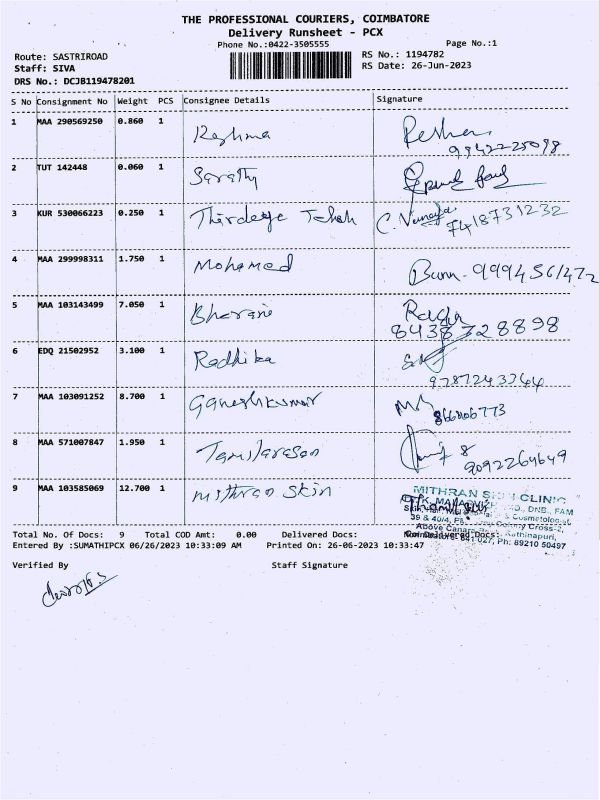 THE PROFESSIONAL COURIERS, COIMBATORE
Delivery Runsheet - PCX
Phone No.:0422-3505555 Page No.:1
Route: SASTRIROAD RS No.: 1194782
Staff: SIVA RS Date: 26-Jun-2023
DRS No.: DCJB119478201
S No Consignment No Weight PCS Consignee Details Signature
1 MAA 290569250 0.860 1 Reshma
9942225098
2 TUT 142448 0.060 1 Sarathy
3 KUR 530066223 0.250 1 Thirdeye 7418731232
4 MAA 299998311 1.750 1 Mohamed
5 MAA 103143499 7.050 1
8438728898
6 EDQ 21502952 3.100 1 Radhika
9787243344
7 MAA 103091252 8.700 1 Ganeshkumar
8 MAA 571007847 1.950 1 Tamilarasan
9092264649
9 MAA 103585069 12.700 1 mithran skin
MITHRAN SKIN CLINIC
DNB., FAM
& Cosmetologist
39 & 40/4,
Colony Cross-2,
Above Canara
641 027, Ph: 89210 50497
Total No. Of Docs: 9 Total COD Amt: 0.00 Delivered Docs: Non Delivered Docs:
Entered By :SUMATHIPCX 06/26/2023 10:33:09 AM Printed On: 26-06-2023 10:33:47
Verified By Staff Signature